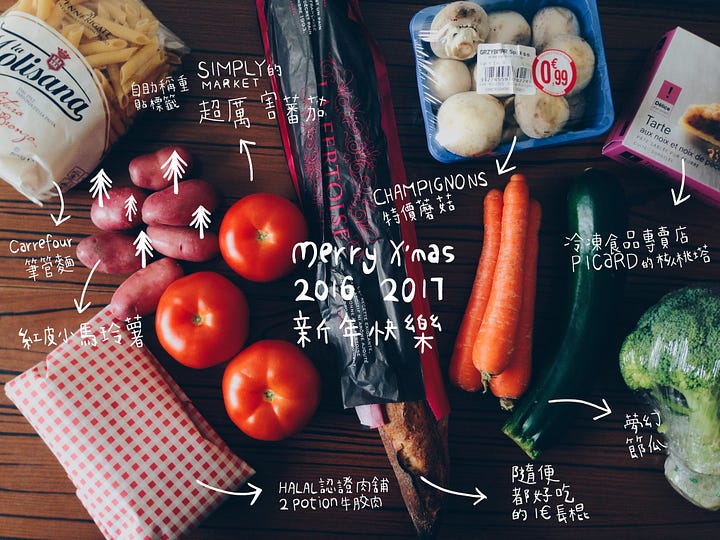 la
Molisana
自助秤重
貼標籤
SIMPLY的
MARKET
超厲害蕃茄
0€99
Délice
Tarte
aux noix et noix de pé
CHAMPIGNONS
特價蘑菇
Carrefour
筆管麵
Merry X'mas
2016 2017
新年快樂
冷凍食品專賣店
PiCARD的核桃塔
紅皮小馬玲薯
夢幻
節瓜
HALAL認證肉舖
2 potion牛腿肉
隨便
都好吃
的1€長棍